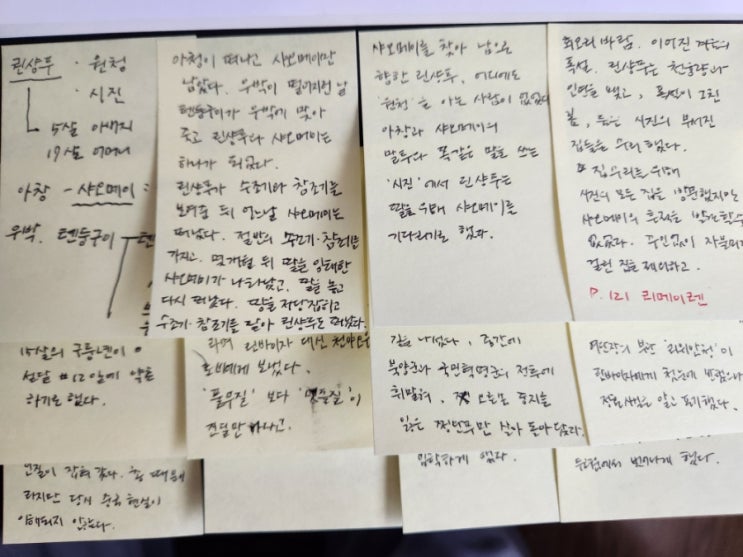 린샹푸 · 원청
· 시진
5살 아버지
19살 어머니
아창 - 샤오메이 :
우박. 톈둥구이
아창이 떠나고 샤오메이만
남았다. 우박이 떨어지던 날
톈둥구이가 우박에 맞아
죽고 린샹푸와 샤오메이는
하나가 되었다.
린샹푸가 수조기와 참조기를
보여준 뒤 어느날 샤오메이는
떠났다. 절반의 수조기·참조기를
가지고. 몇개월 뒤 딸을 임태한
샤오메이가 나타났고, 딸을 놓고
다시 떠났다. 땅을 저당잡히고
수조기·참조기를 팔아 린샹푸도 떠났다.
샤오메이를 찾아 남으로
향한 린샹푸, 어디에도
'원청'을 아는 사람이 없었다
아창과 샤오메이의
말투와 똑같은 말을 쓰는
'시진'에서 린샹푸는
딸을 위해 샤오메이를
기다리기로 했다.
회오리바람. 이어진 겨울의
폭설. 린샹푸는 천융량과
인연을 맺고, 폭설이 그친
봄, 둘은 시진의 부서진
집들을 수리했다.
집수리를 위해
시진의 모든 집을 방문했지만
샤오메이의 흔적을 발견할 수
없었다. 주인없이 자물쇠가
걸린 집을 제외하고.
P. 121 리메이롄
15살의 구퉁녠이
섣달 #12일에 약혼
하기로 했다.
라며 린바이자 대신 천야오우를
토비에게 보냈다.
'풀무질' 보다
견딜만 하다니.
길을 나섰다, 중간에
북양군과 국민혁명군의 전투에
휘말려, 오른쪽 궁둥이를
잃은 쩡완푸만 살아 돌아왔다.
여산장의 부관
린바이자에게 첫눈에 반했으나
정혼 사실을 알고 포기했다.
인질이 잡혀 갔다. 총 때문에
라지만 당시 중국 현실이
이해되지 않는다.
입학하게 했다.
뒤편에서 벗어나게 했다.